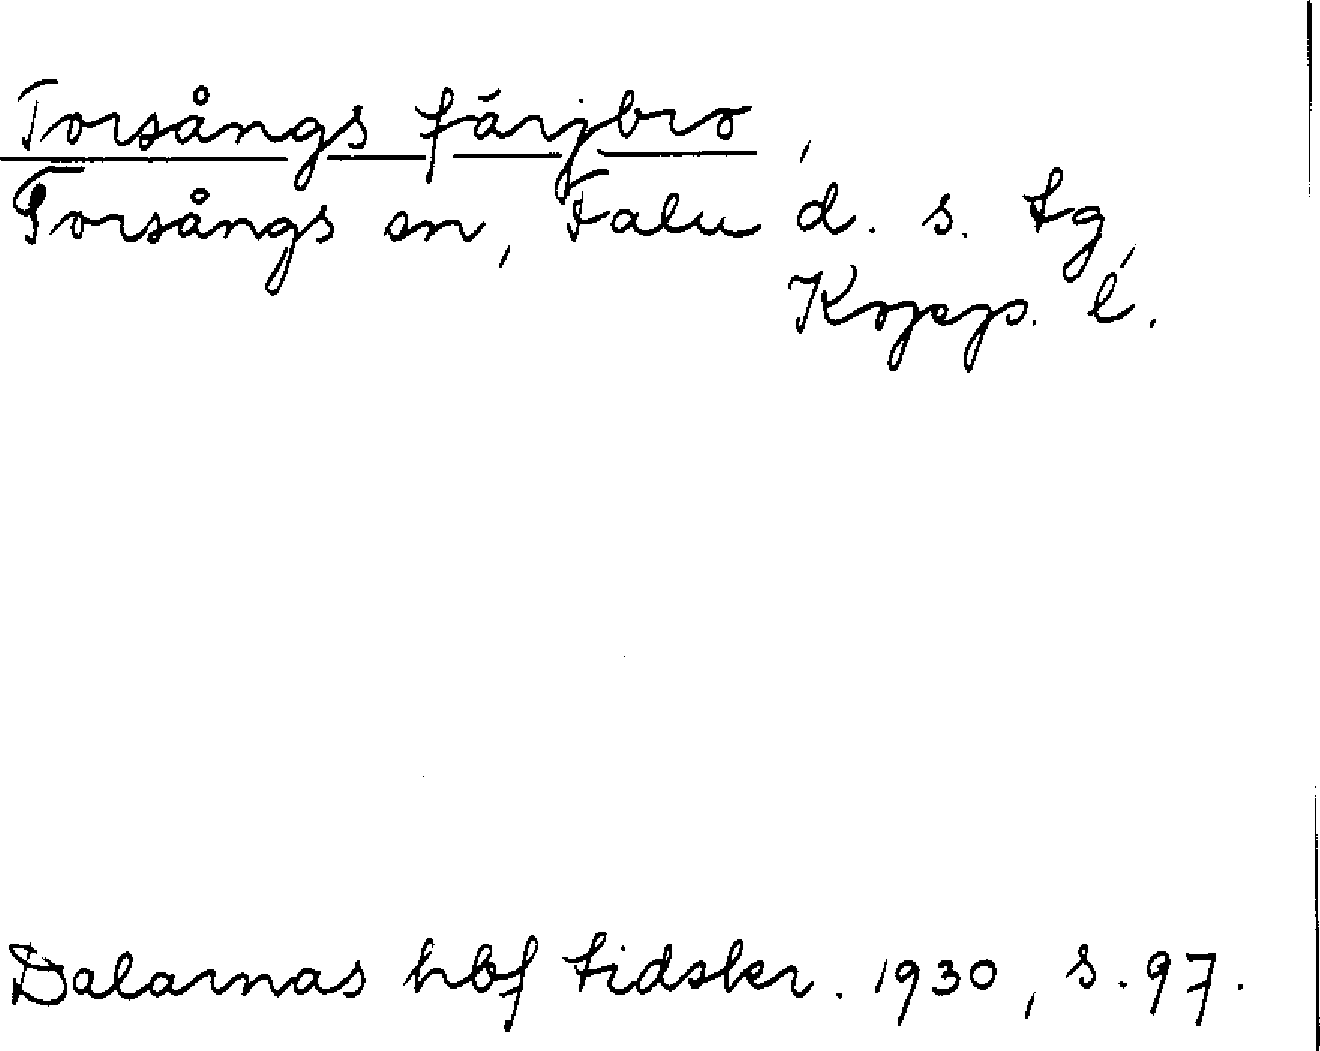 Torsångs färjbro,
Torsångs sn, Falu d. s. tg,
Kopp. l.
Dalarnas hbf tidskr. 1930, s. 97.